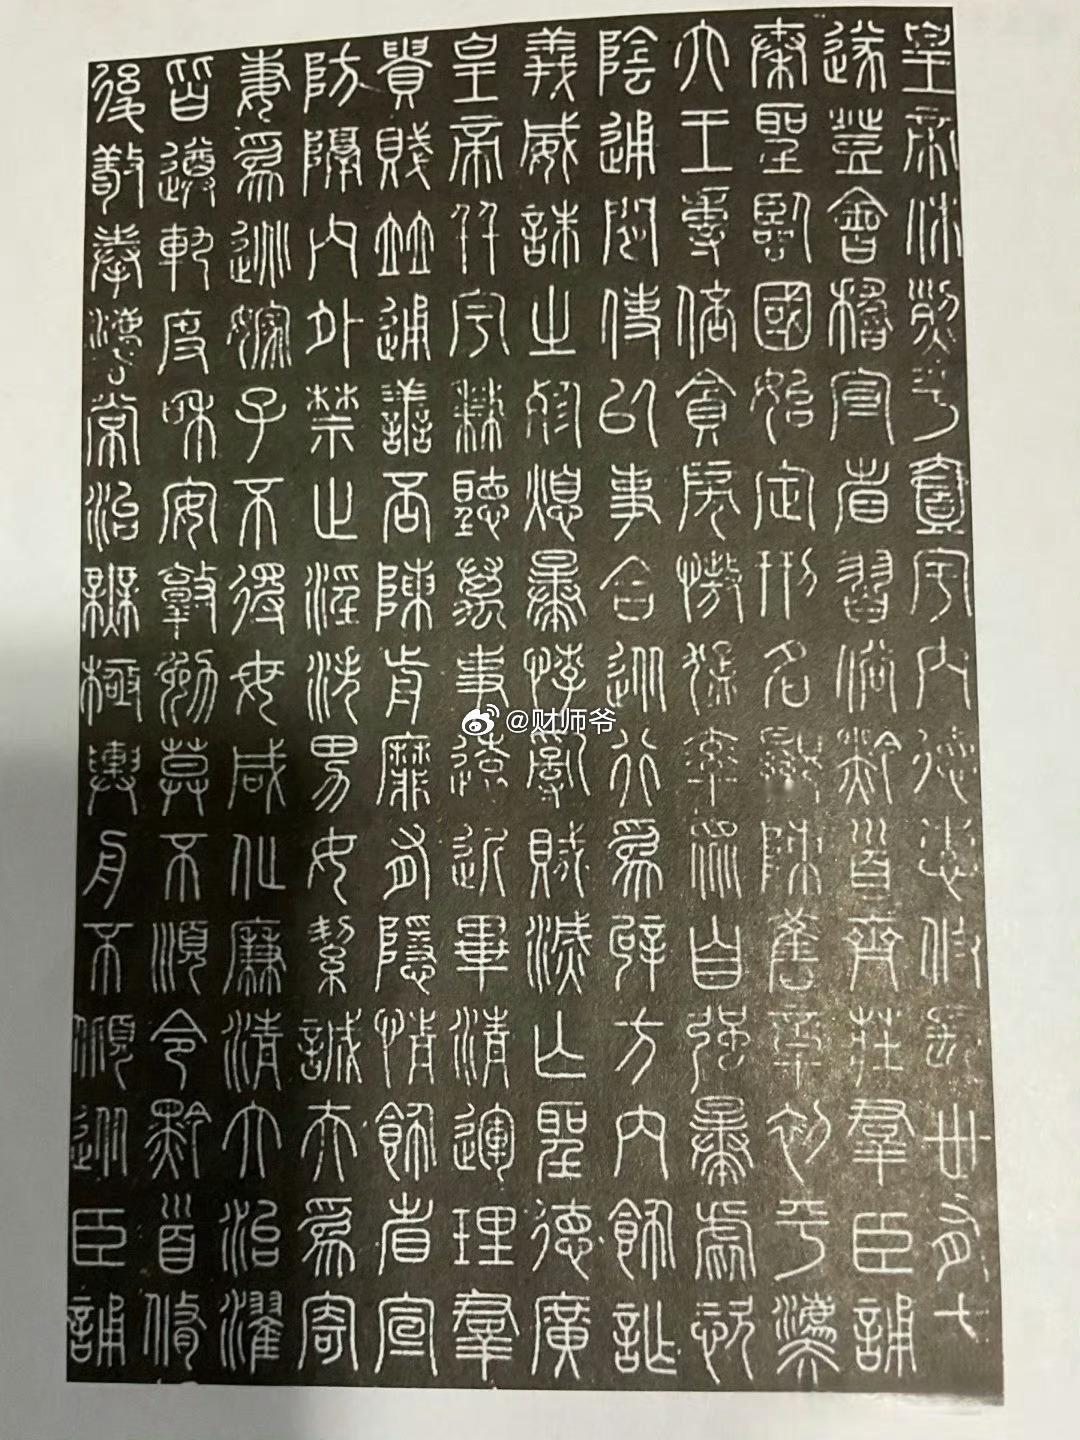 皇帝休烈平壹宇內德惠修長卅有七
遂登會稽宣省習俗黔首齊莊羣臣誦
秦聖臨國始定刑名顯陳舊章初平灋
六王專倍貪戾慠猛率眾自強暴虐恣
陰通閒使以事合從行為辟方內飾詐
義威誅之殄熄暴悖亂賊滅亡聖德廣
皇帝并宇兼聽萬事遠近畢清運理羣
貴賤並通善否陳前靡有隱情飾省宣
防隔內外禁止淫泆男女絜誠夫為寄
妻為逃嫁子不得母咸化廉清大治濯
皆遵軌度和安敦勉莫不順令黔首脩
後敬奉灋常治無極輿舟不傾從臣誦
@财师爷